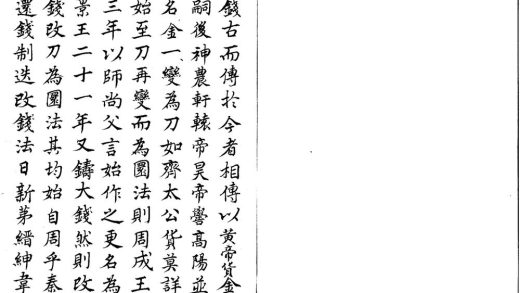 錢古而傳於今者相傳以黃帝貨金
嗣後神農軒轅帝昊帝嚳高陽並
名金一變為刀如齊太公貨莫詳
始至刀再變而為圜法則周成王
三年以師尚父言始作之更名為
景王二十一年又鑄大錢然則改
錢改刀為圜法其均始自周乎秦
還錢制迭改錢法日新第縉紳韋